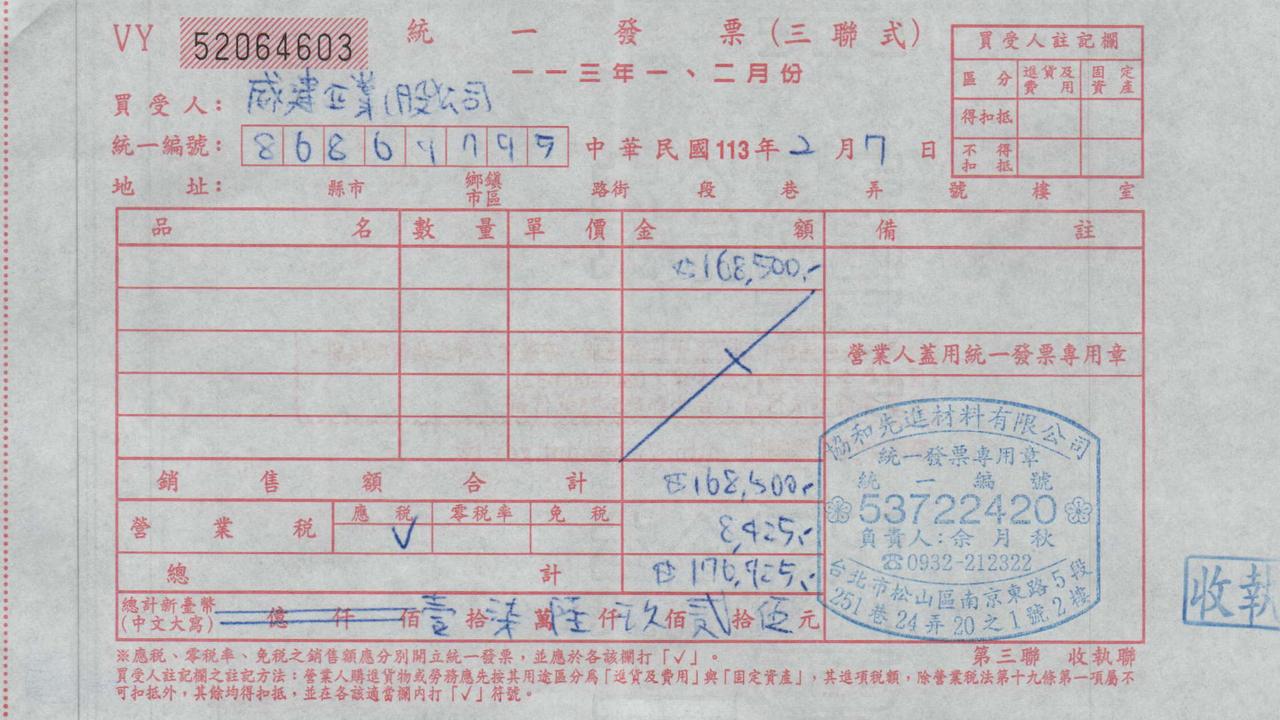 VY 52064603 統一發票(三聯式)
一一三年一、二月份
買受人註記欄
區分 進貨及費用 固定資產
得扣抵
不得扣抵
買受人: 威建企業(股公司
統一編號: 中華民國113年2月7日
地址: 縣市 鄉鎮市區 路街 段 巷 弄 號 樓 室
品名 數量 單價 金額 備註
168,500.-
營業人蓋用統一發票專用章
銷售額合計 168,500.-
營業稅 應稅 零稅率 免稅
✓ 8,425.-
總計 176,925.-
總計新臺幣(中文大寫) 億 仟 佰 壹 拾 柒 萬 陸 仟 玖 佰 貳 拾 伍 元
協和先進材料有限公司
統一發票專用章
統一編號
53722420
負責人:余月秋
☎0932-212322
台北市松山區南京東路5段
251巷24弄20之1號2樓
收執
第三聯 收執聯
※應稅、零稅率、免稅之銷售額應分別開立統一發票,並應於各該欄打「✓」。
買受人註記欄之註記方法:營業人購進貨物或勞務應先按其用途區分為「進貨及費用」與「固定資產」,其進項稅額,除營業稅法第十九條第一項屬不
可扣抵外,其餘均得扣抵,並在各該適當欄內打「✓」符號。